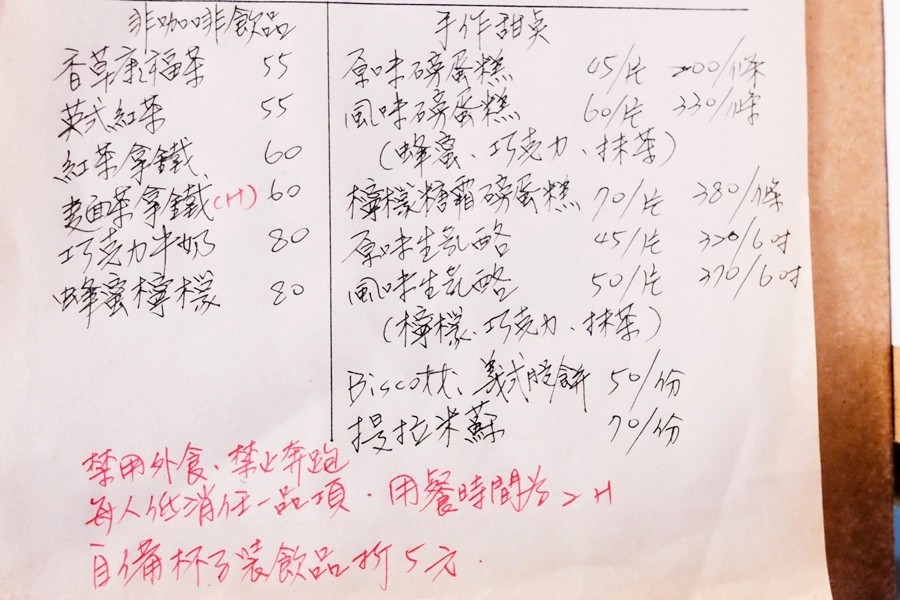 非咖啡飲品
香草康福茶 55
英式紅茶 55
紅茶拿鐵 60
麵茶拿鐵(H) 60
巧克力牛奶 80
蜂蜜檸檬 80
手作甜桌
原味磅蛋糕 45/片 200/條
風味磅蛋糕 60/片 330/條
(蜂蜜、巧克力、抹茶)
檸檬糖霜磅蛋糕 70/片 380/條
原味生乳酪 45/片 320/6吋
風味生乳酪 50/片 370/6吋
(檸檬、巧克力、抹茶)
義式脆餅 50/份
提拉米蘇 70/份
禁用外食、禁止奔跑
每人低消任一品項.用餐時間為2H
自備杯子裝飲品折5元.